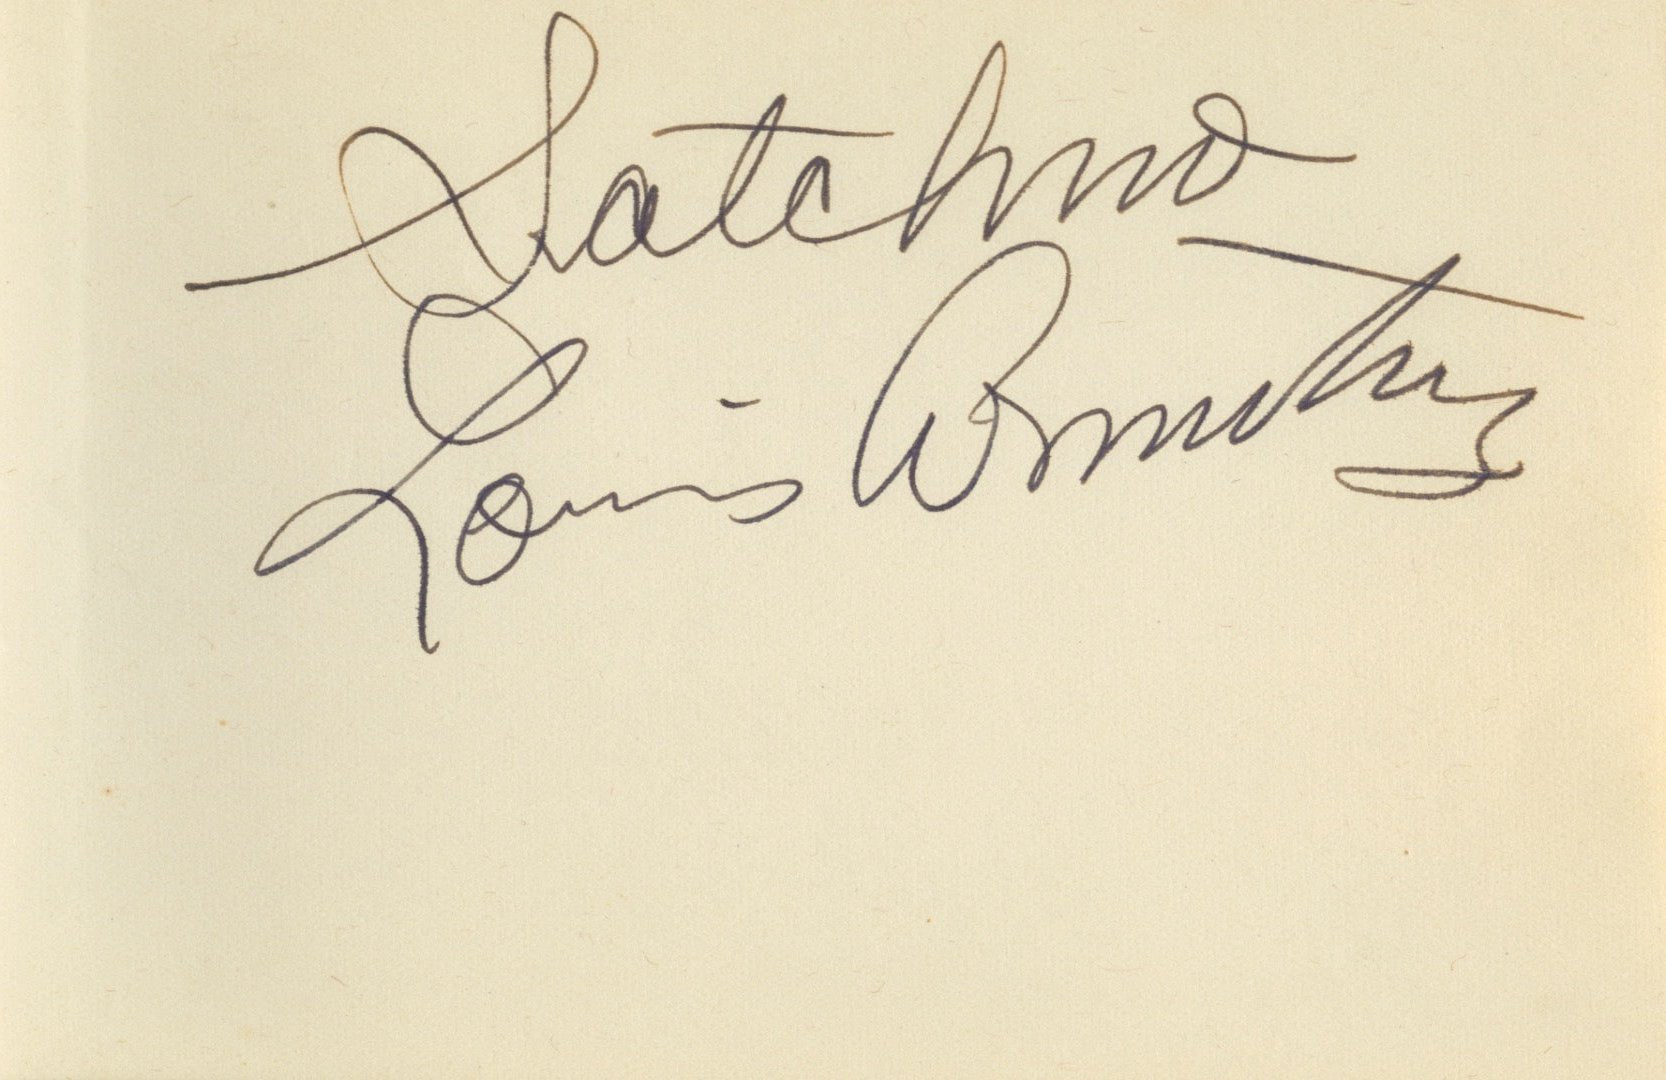 Satchmo
Louis Armstrong